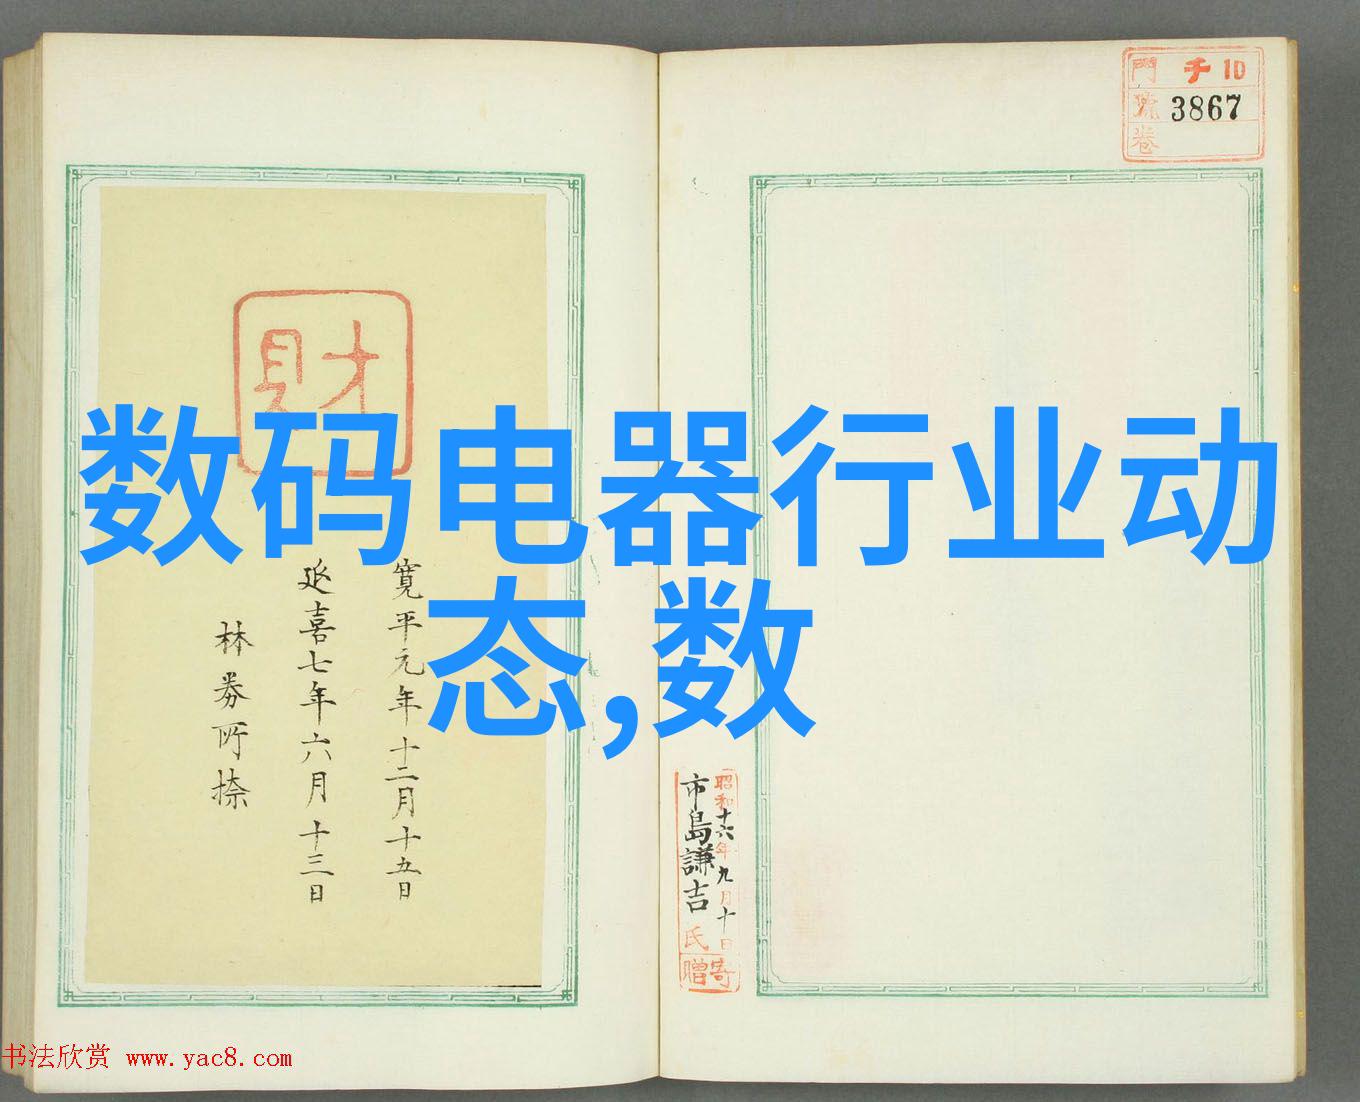 門 千 10
號 3867
卷
財
数码电器行业动
态,数
寛平元年十二月十五日
延喜七年六月十三日
林券所捺
昭和十六年九月十日
市島謙吉氏
寄贈
书法欣赏 www.yac8.com